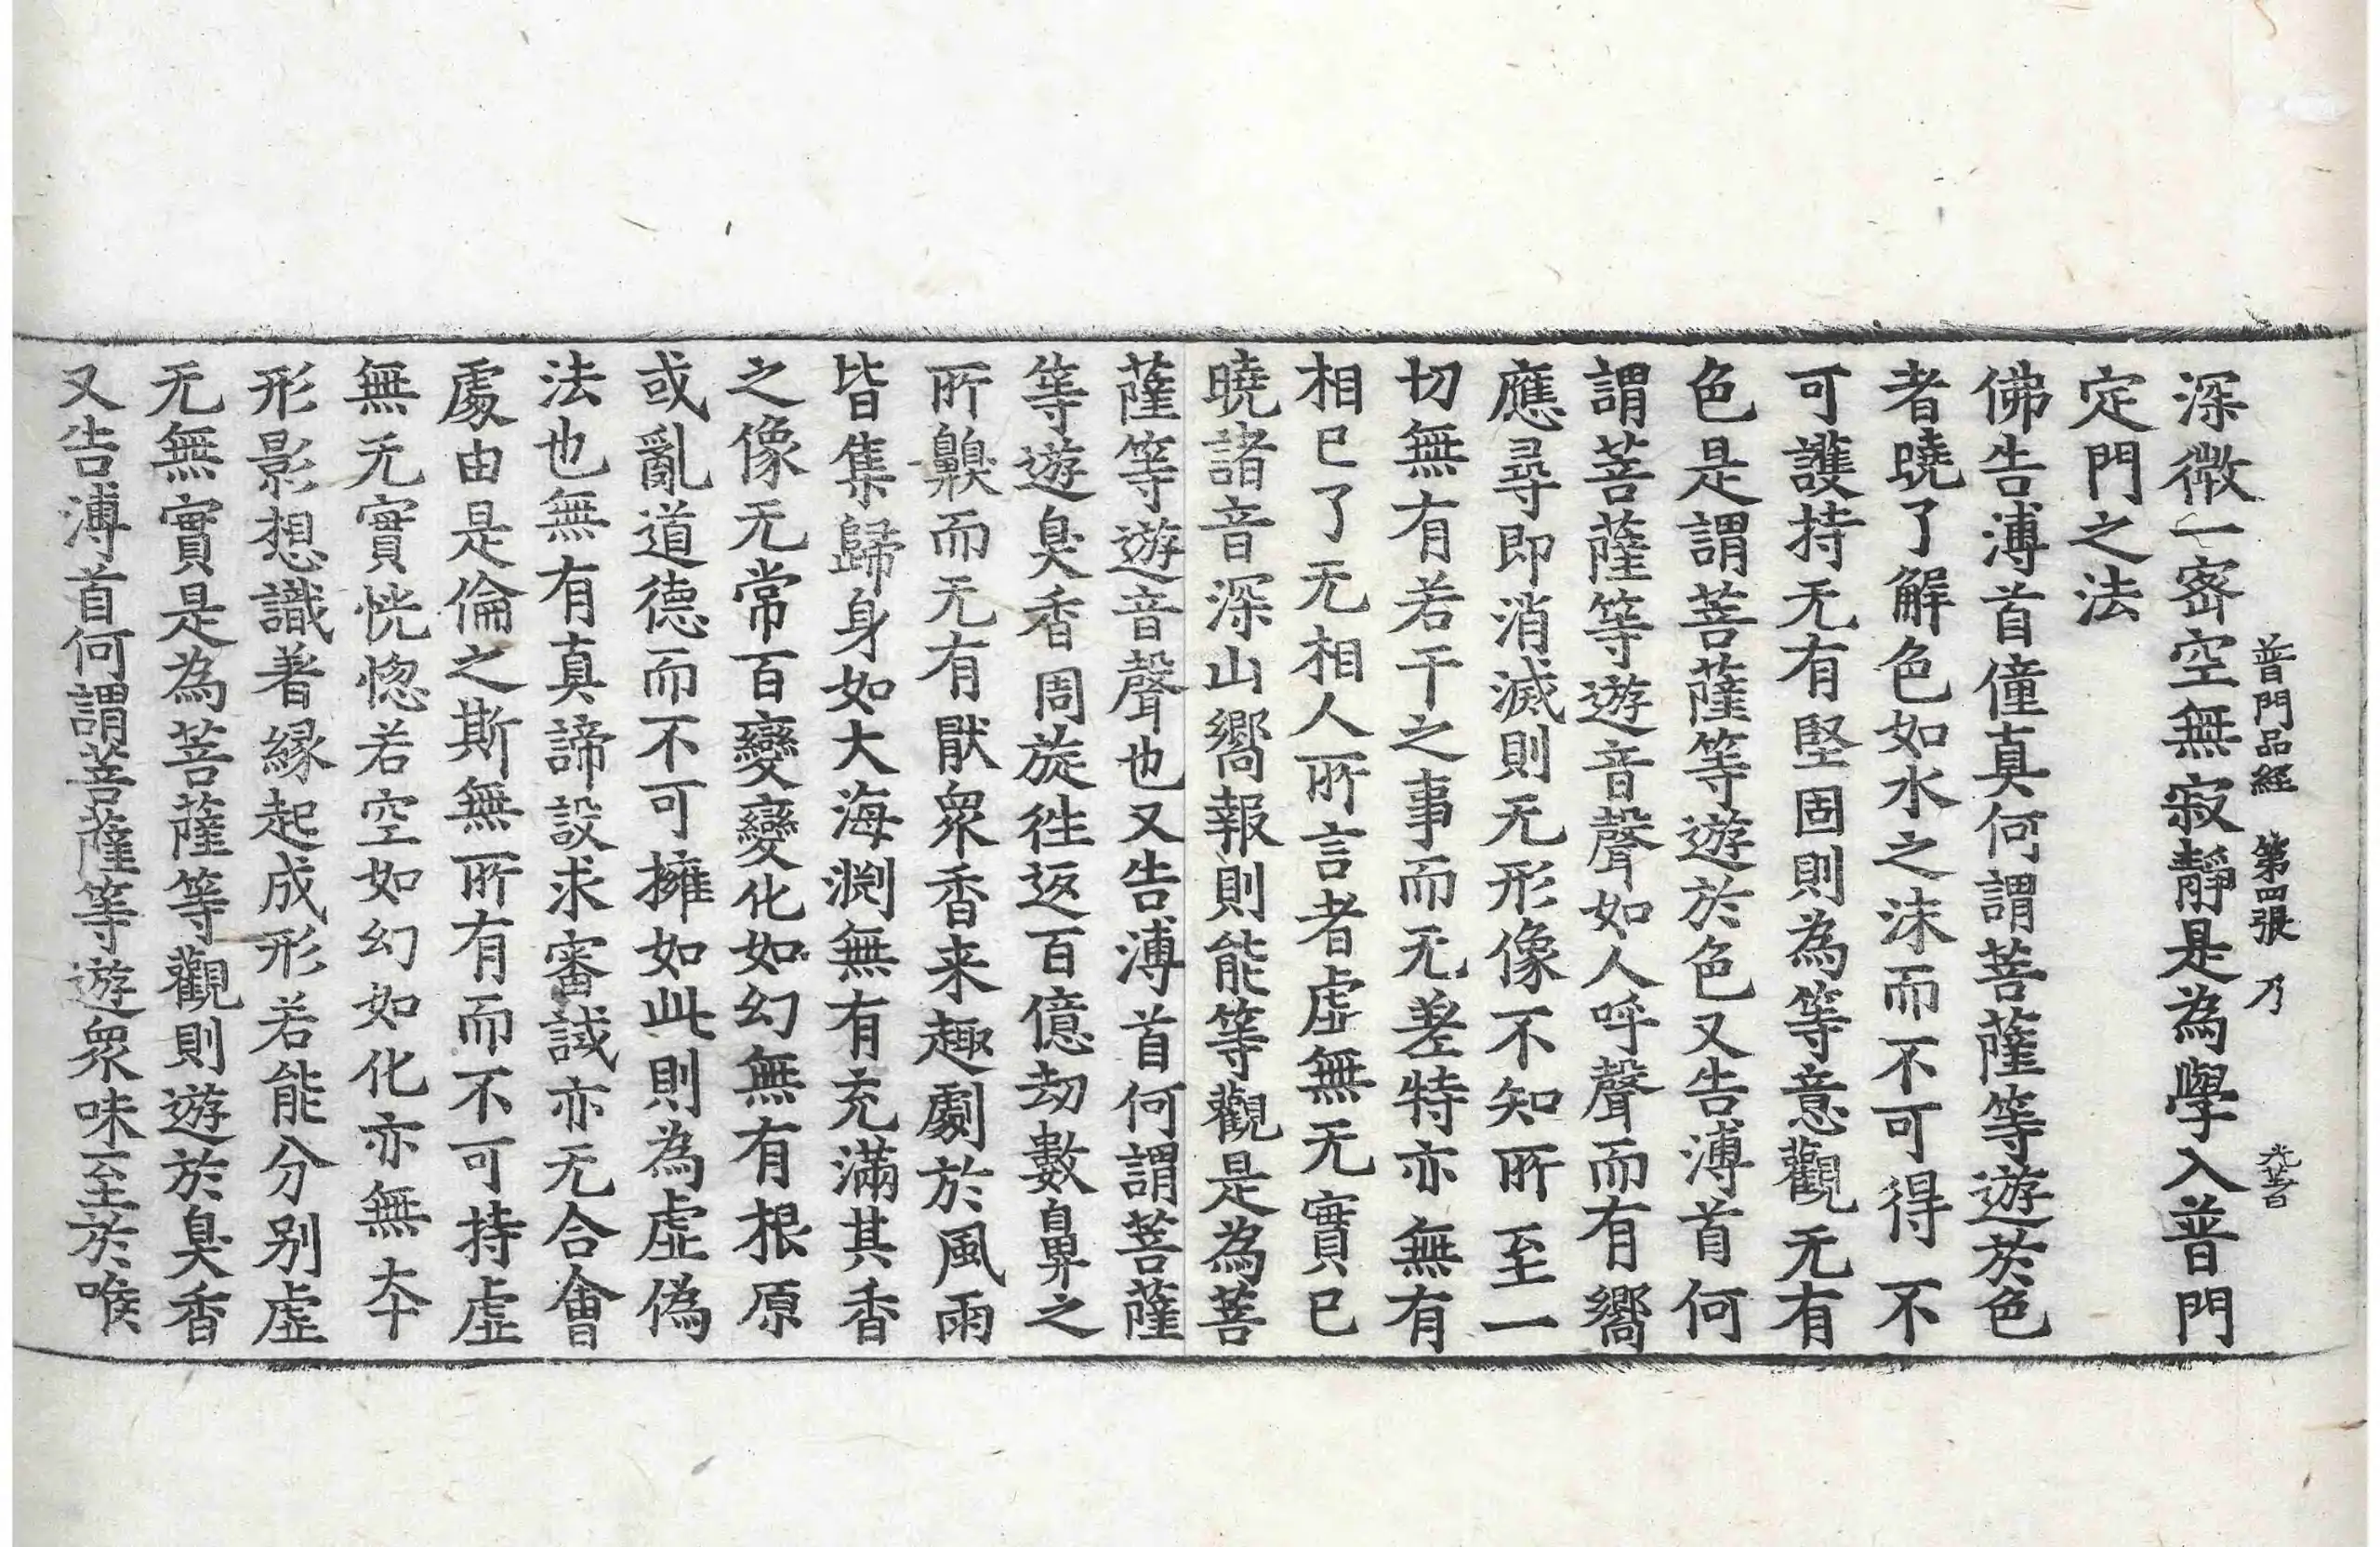 普門品經 第四張 乃
深微一宻空無寂靜是為學入普門
定門之法
佛告溥首僮真何謂菩薩等遊於色
者曉了解色如水之沫而不可得不
可護持无有堅固則為等意觀无有
色是謂菩薩等遊於色又告溥首何
謂菩薩等遊音聲如人呼聲而有嚮
應尋即消滅則无形像不知所至一
切無有若干之事而无差特亦無有
相已了无相人所言者虛無无實已
曉諸音深山嚮報則能等觀是為菩
薩等遊音聲也又告溥首何謂菩薩
等遊臭香周旋徃返百億劫數鼻之
所齅而无有猒衆香来趣劇於風雨
皆集歸身如大海渕無有充滿其香
之像无常百變變化如幻無有根原
或亂道德而不可擁如此則為虛偽
法也無有真諦設求審誠亦无合會
處由是倫之斯無所有而不可持虛
無无實恍惚若空如幻如化亦無夲
形影想識著緣起成形若能分別虛
无無實是為菩薩等觀則遊於臭香
又告溥首何謂菩薩等遊衆味至於喉